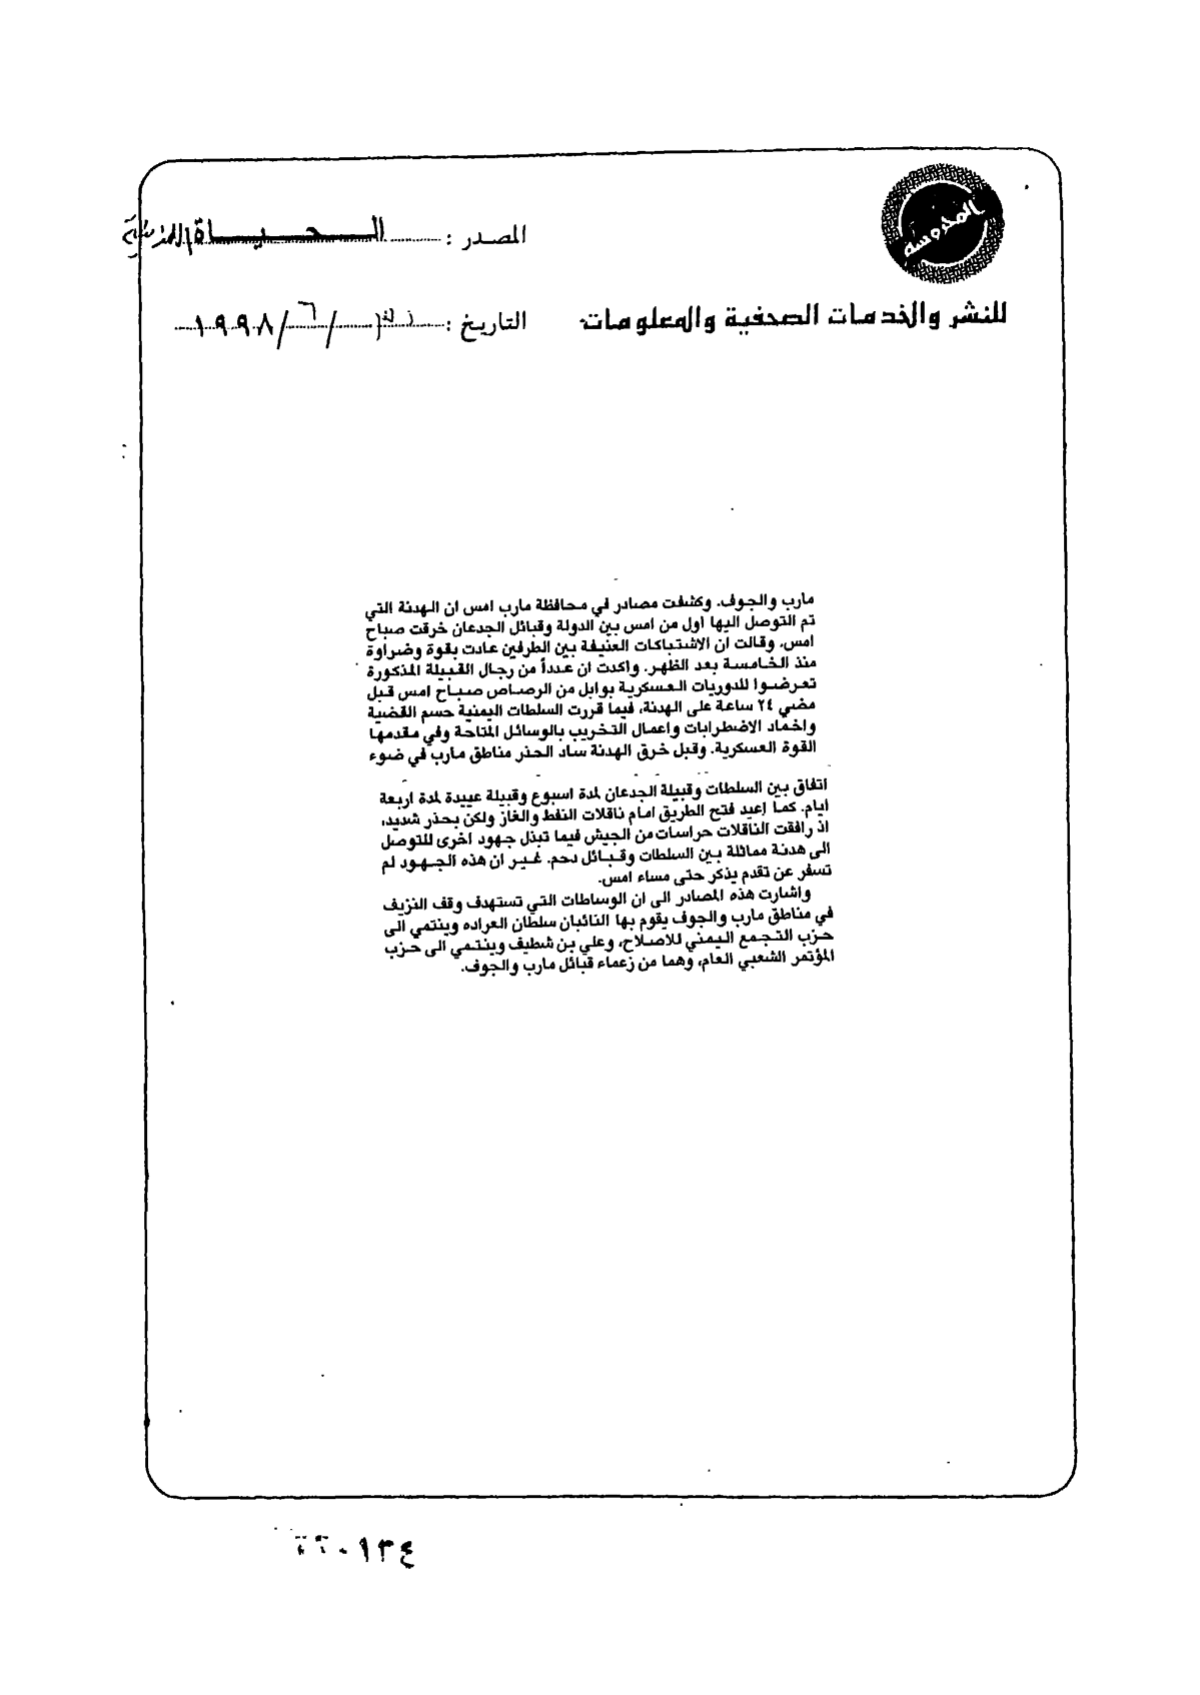 المحروسة
المصدر : الحياة اللندنية
للنشر والخدمات الصحفية والمعلومات
التاريخ : / ٦ / ١٩٩٨
مارب والجوف. وكشفت مصادر في محافظة مارب امس ان الهدنة التي
تم التوصل اليها اول من امس بين الدولة وقبائل الجدعان خرقت صباح
امس. وقالت ان الاشتباكات العنيفة بين الطرفين عادت بقوة وضراوة
منذ الخامسة بعد الظهر. واكدت ان عدداً من رجال القبيلة المذكورة
تعرضوا للدوريات العسكرية بوابل من الرصاص صباح امس قبل
مضي ٢٤ ساعة على الهدنة، فيما قررت السلطات اليمنية حسم القضية
واخماد الاضطرابات واعمال التخريب بالوسائل المتاحة وفي مقدمها
القوة العسكرية. وقبل خرق الهدنة ساد الحذر مناطق مارب في ضوء
اتفاق بين السلطات وقبيلة الجدعان لمدة اسبوع وقبيلة عبيدة لمدة اربعة
أيام. كما اعيد فتح الطريق امام ناقلات النفط والغاز ولكن بحذر شديد،
اذ رافقت الناقلات حراسات من الجيش فيما تبذل جهود اخرى للتوصل
الى هدنة مماثلة بين السلطات وقبائل دحم. غير ان هذه الجهود لم
تسفر عن تقدم يذكر حتى مساء امس.
واشارت هذه المصادر الى ان الوساطات التي تستهدف وقف النزيف
في مناطق مارب والجوف يقوم بها النائبان سلطان العراده وينتمي الى
حزب التجمع اليمني للاصلاح، وعلي بن شطيف وينتمي الى حزب
المؤتمر الشعبي العام، وهما من زعماء قبائل مارب والجوف.